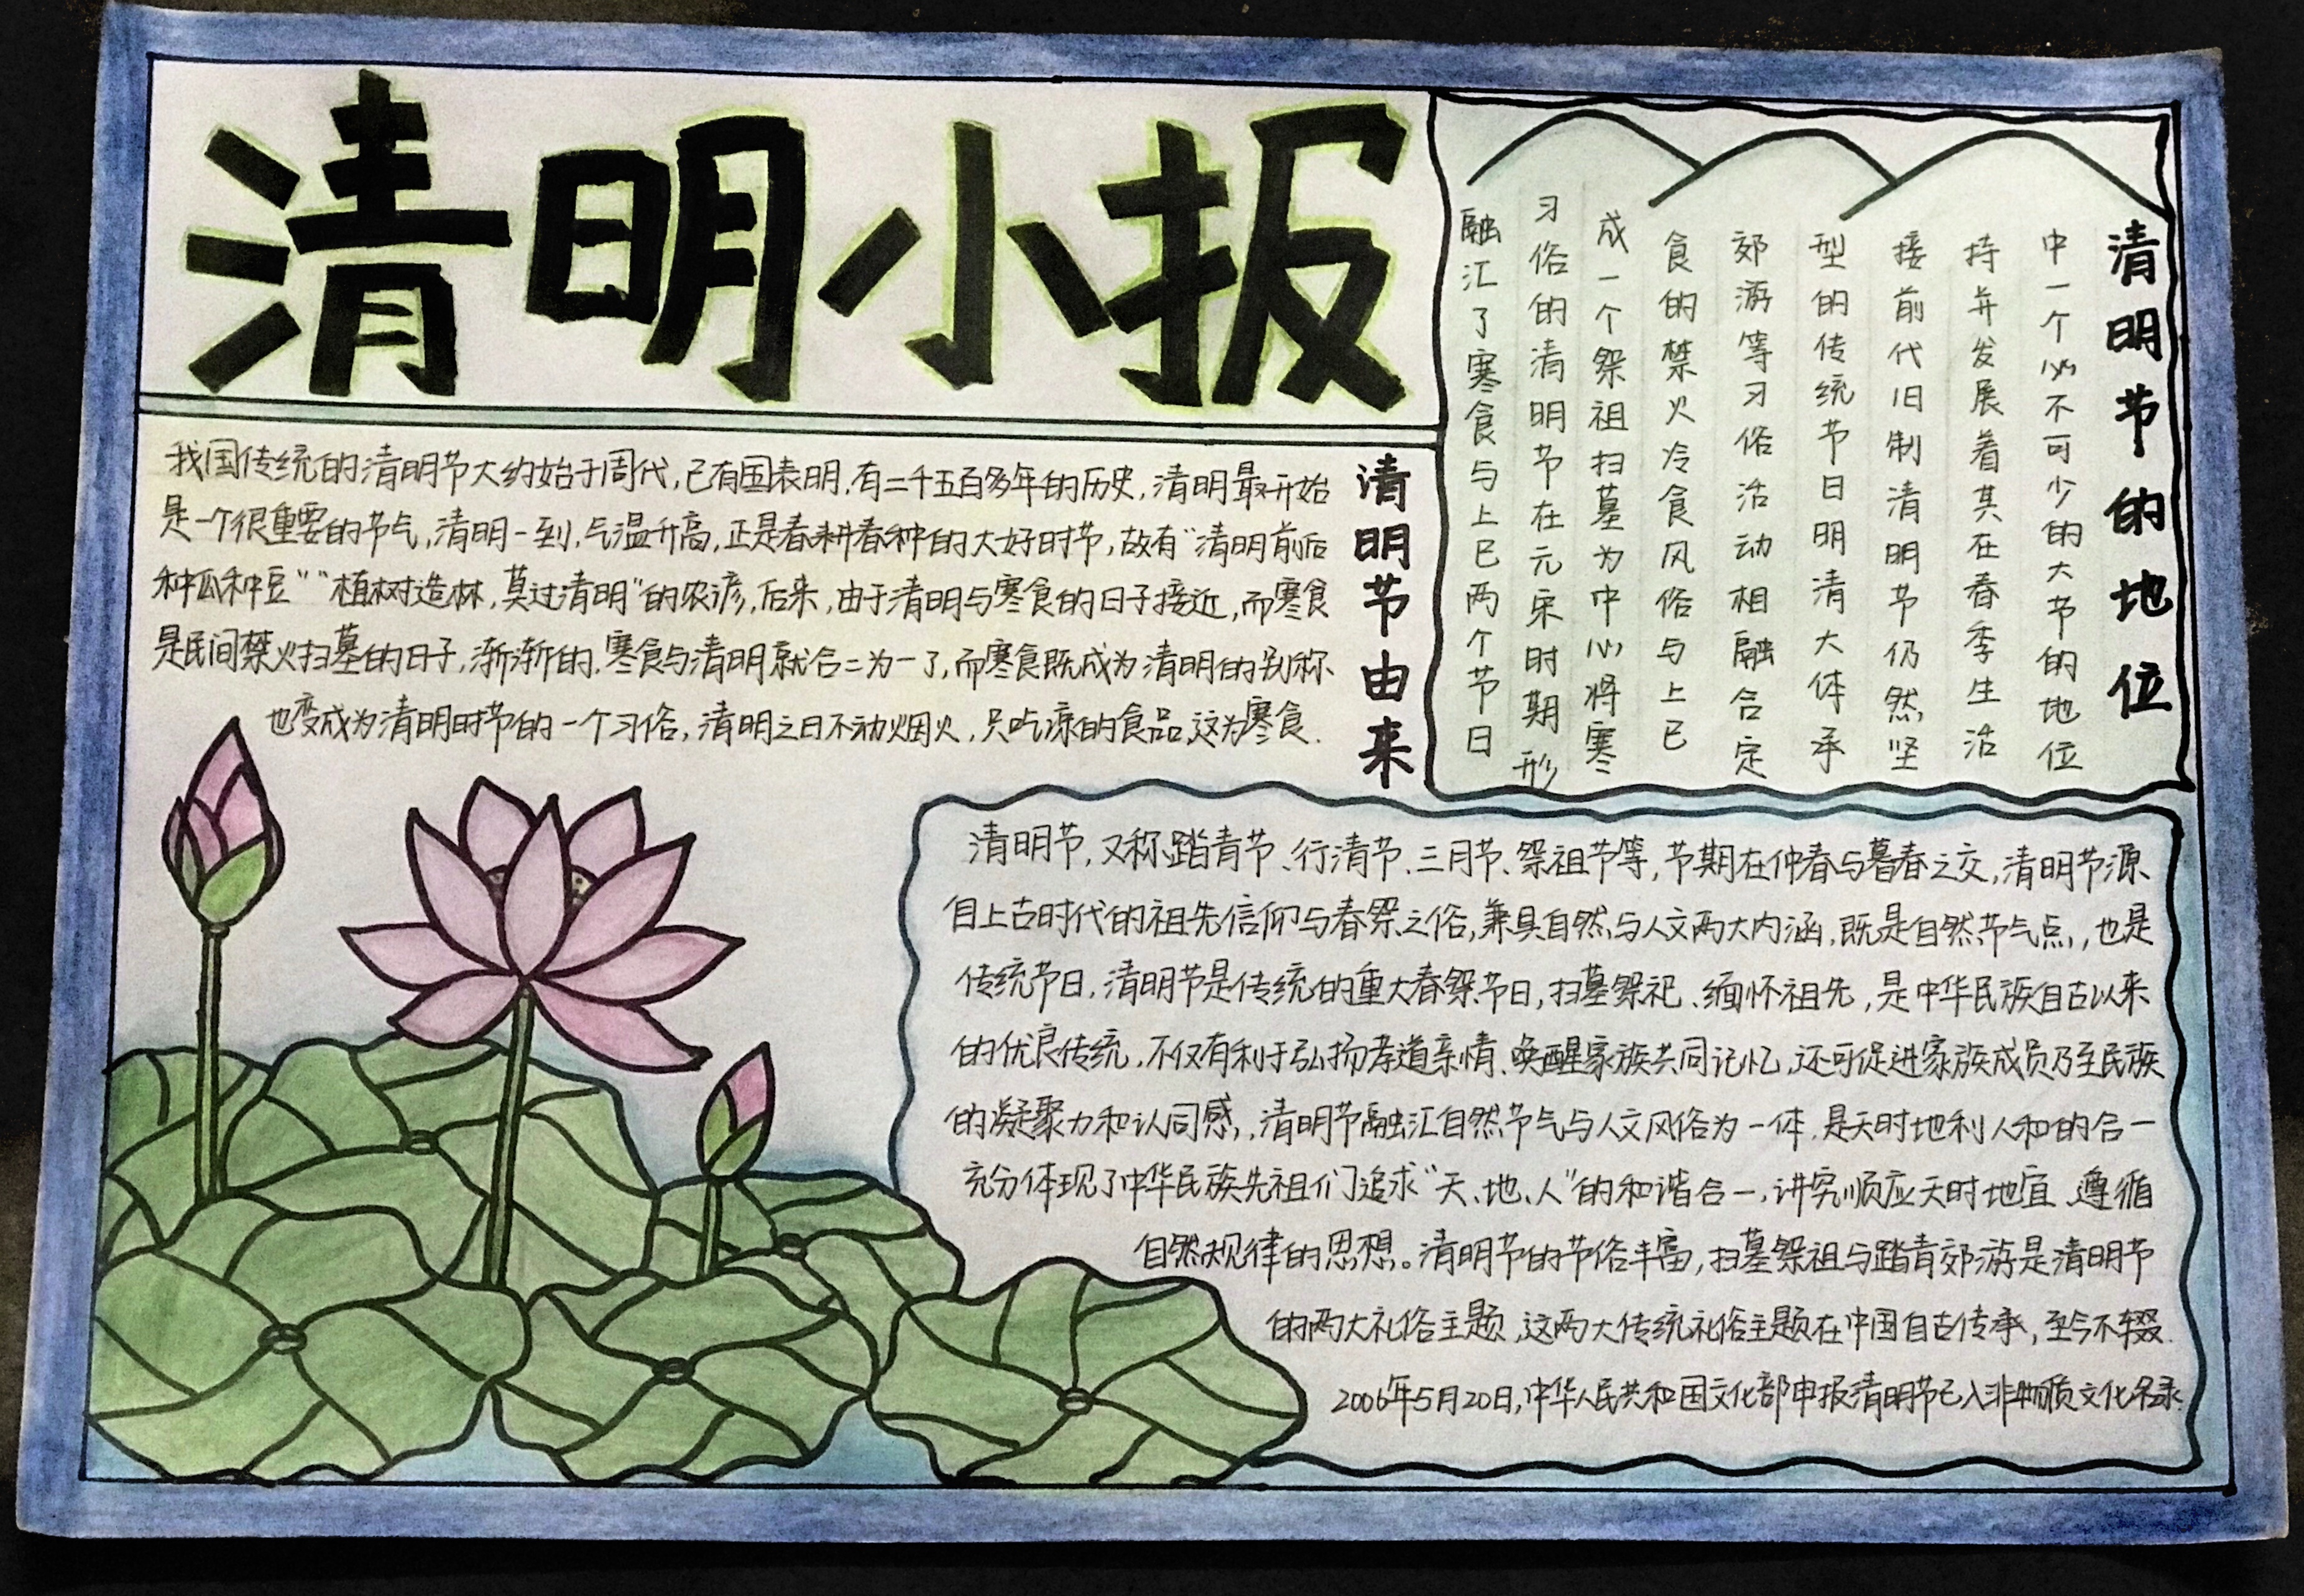 清明小报
清明节由来
我国传统的清明节大约始于周代,已有国表明,有二千五百多年的历史,清明最开始
是一个很重要的节气,清明一到,气温升高,正是春耕春种的大好时节,故有“清明前后
种瓜种豆”“植树造林,莫过清明”的农谚,后来,由于清明与寒食的日子接近,而寒食
是民间禁火扫墓的日子,渐渐的,寒食与清明就合二为一了,而寒食既成为清明的别称
也变成为清明时节的一个习俗,清明之日不动烟火,只吃凉的食品,这为寒食.
清明节的地位
融汇了寒食与上巳两个节日
习俗的清明节在元宋时期形
成一个祭祖扫墓为中心将寒
食的禁火冷食风俗与上巳
郊游等习俗活动相融合定
型的传统节日明清大体承
接前代旧制清明节仍然坚
持并发展着其在春季生活
中一个必不可少的大节的地位
清明节,又称踏青节、行清节、三月节、祭祖节等,节期在仲春与暮春之交,清明节源
自上古时代的祖先信仰与春祭之俗,兼具自然与人文两大内涵,既是自然节气点,也是
传统节日,清明节是传统的重大春祭节日,扫墓祭祀、缅怀祖先,是中华民族自古以来
的优良传统,不仅有利于弘扬孝道亲情、唤醒家族共同记忆,还可促进家族成员乃至民族
的凝聚力和认同感,清明节融汇自然节气与人文风俗为一体,是天时地利人和的合一
充分体现了中华民族先祖们追求“天、地、人”的和谐合一,讲究顺应天时地宜、遵循
自然规律的思想。清明节的节俗丰富,扫墓祭祖与踏青郊游是清明节
的两大礼俗主题,这两大传统礼俗主题在中国自古传承,至今不辍.
2006年5月20日,中华人民共和国文化部申报清明节已入非物质文化名录.